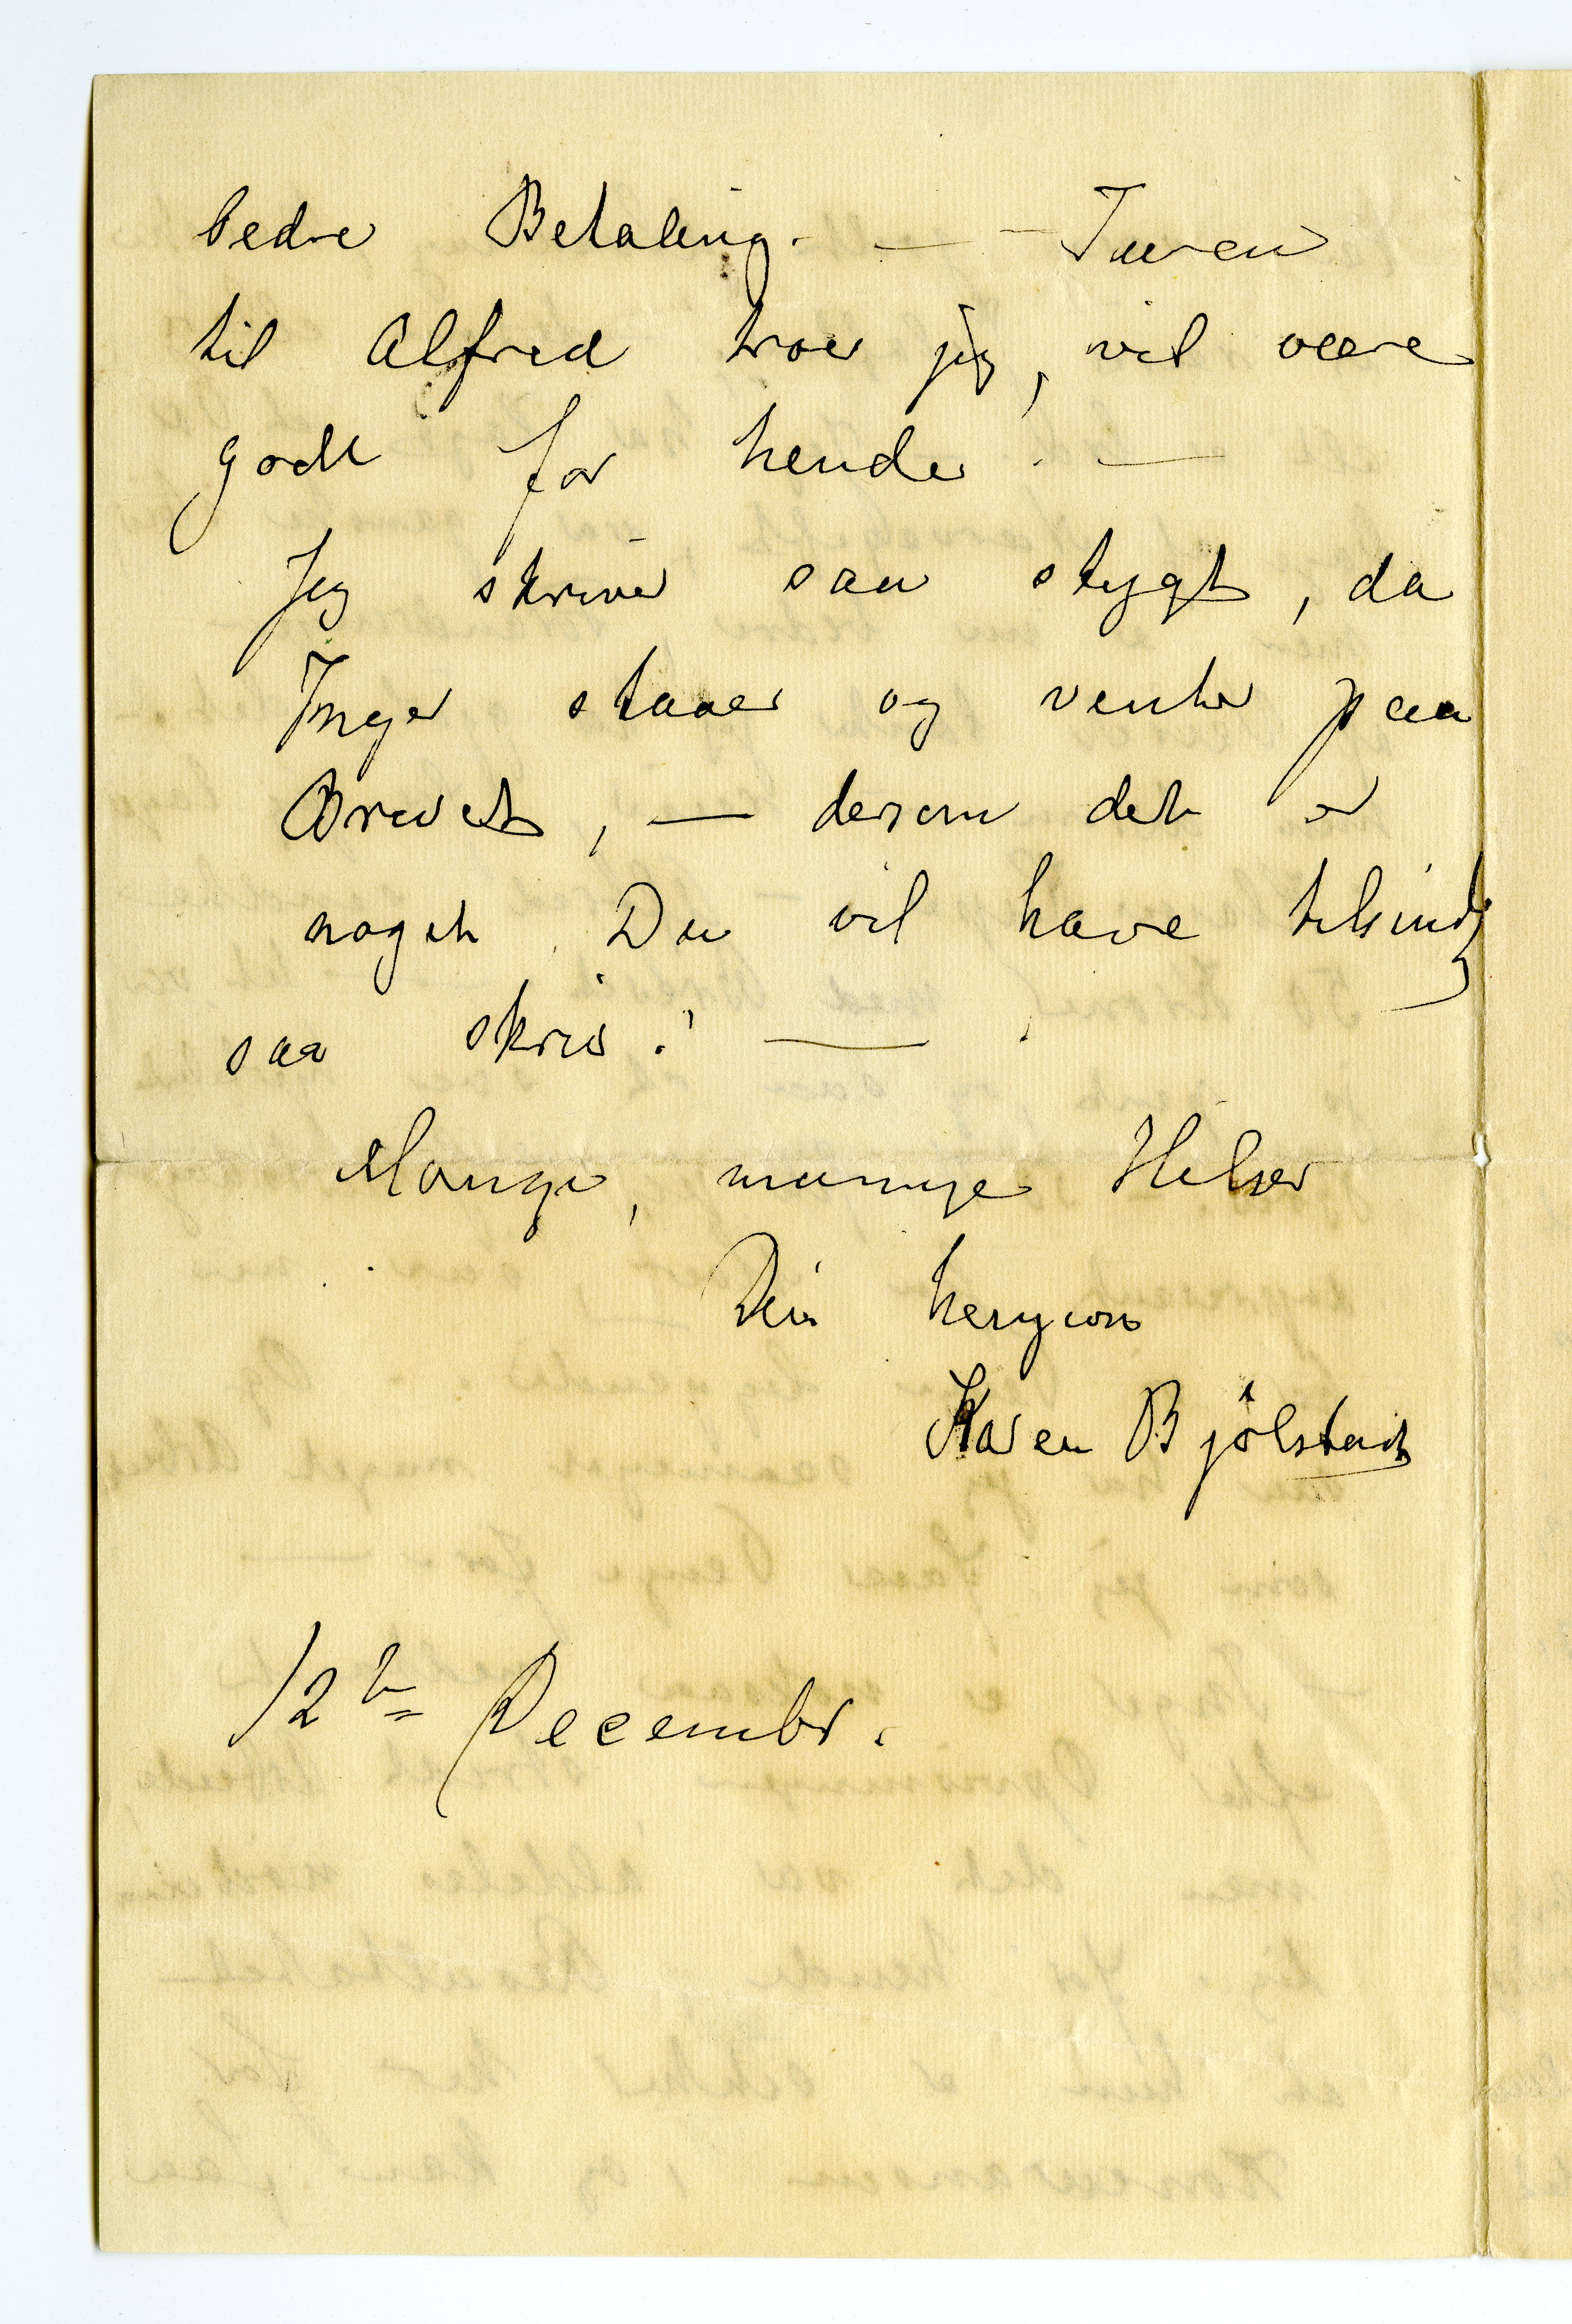 bedre Betaling. — - Turen
til Alfred troer jeg, vil være
godt for hende. —
Jeg skriver saa stygt, da
Inger staaer og venter paa
Brevet, — dersom det er
noget Du vil have tilsendt
saa skriv! —
Mange, mange Hilsner
Din hengivne
Karen Bjölstad
12te December.